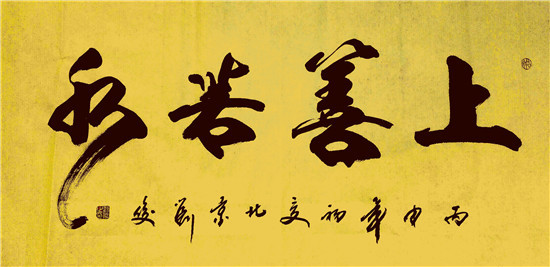 上善若水
丙申年初夏北京劉俊